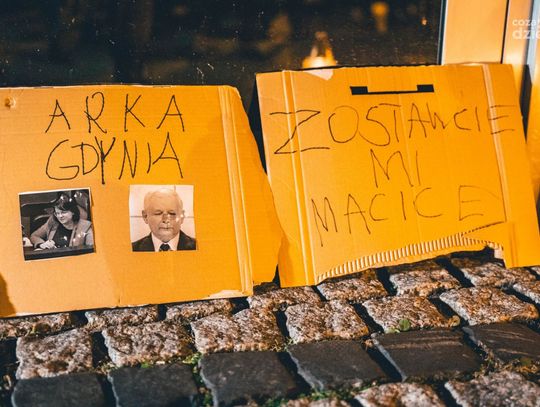 ARKA
GDYNIA
ZOSTAWCIE
MI
MACICĘ
coza
dzień